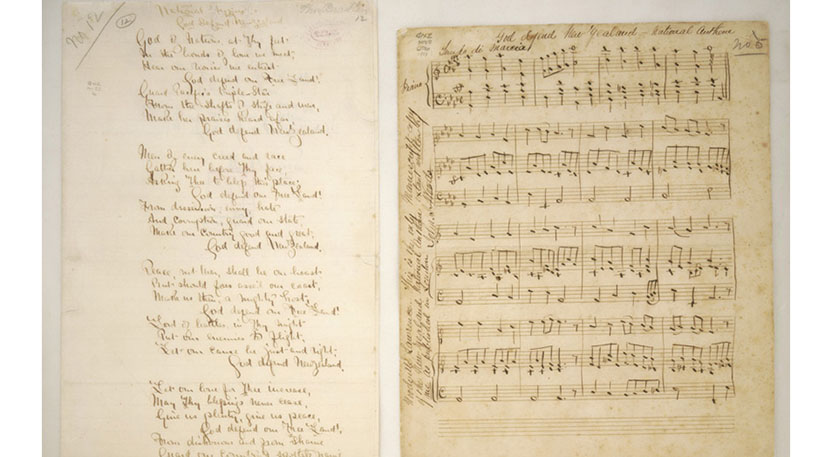 National Hymn
God defend New Zealand
12
God of Nations at Thy feet
In the bonds of love we meet,
Hear our voices we entreat
God defend our Free Land!
Guard Pacific's triple Star
From the shafts of strife and war,
Make her praises heard afar,
God defend New Zealand.
Men of every creed and race
Gather here before Thy face,
Asking Thee to bless this place,
God defend our Free Land!
From dissension, envy, hate
And corruption, guard our State
Make our Country good and great,
God defend New Zealand.
Peace, not War, shall be our boast
But should foes assail our coast,
Make us then a mighty host,
God defend our Free Land!
Lord of battles in Thy might
Put our enemies to flight,
Let our cause be just and right,
God defend New Zealand.
Let our love for Thee increase,
May Thy blessings never cease,
Give us plenty, give us peace,
God defend our Free Land!
From dishonour and from Shame
Guard our Country's spotless name
God defend New Zealand – National Anthem
Tempo di marcia
No. 5
Piano